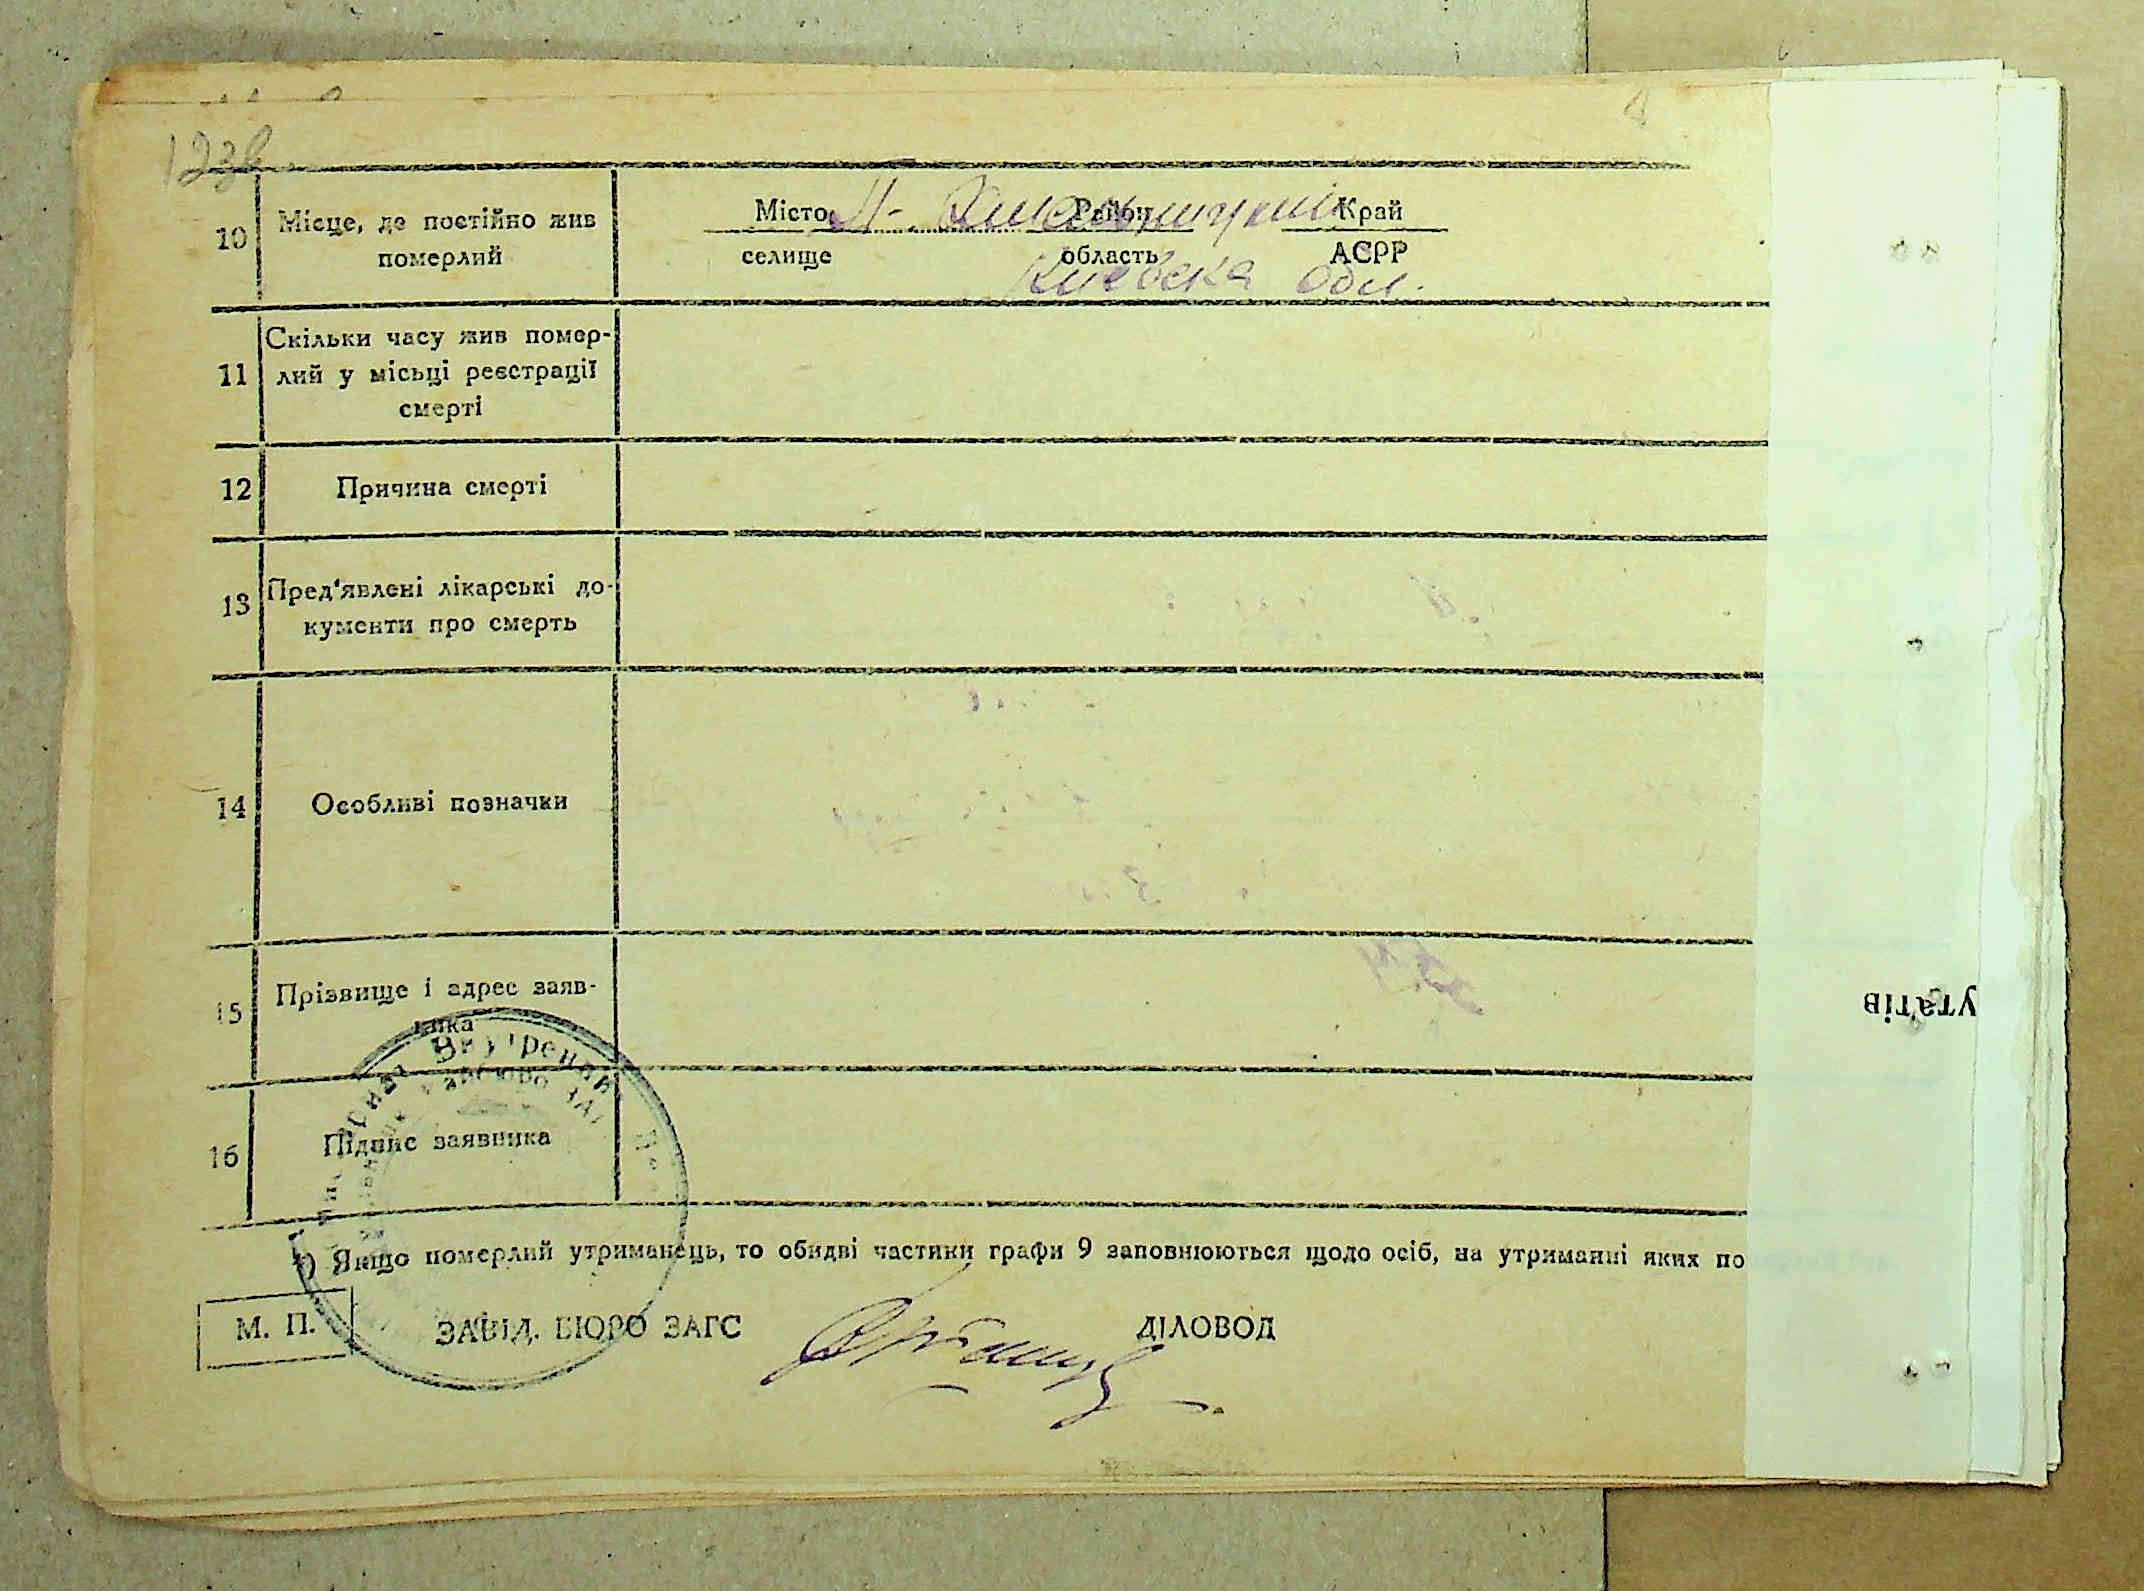 123в
Місто Район Край
10 Місце, де постійно жив
померлий
селище область АСРР
Киевска обл.
11 Скільки часу жив помер-
лий у місьці реєстрації
смерті
12 Причина смерті
13 Пред'явлені лікарські до-
кументи про смерть
14 Особливі позначки
15 Прізвище і адрес заяв-
ника
16 Підпис заявника
*) Якщо померлий утриманець, то обидві частини графи 9 заповнюються щодо осіб, на утриманні яких по
М. П. ЗАВІД. БЮРО ЗАГС ДІЛОВОД
утатів